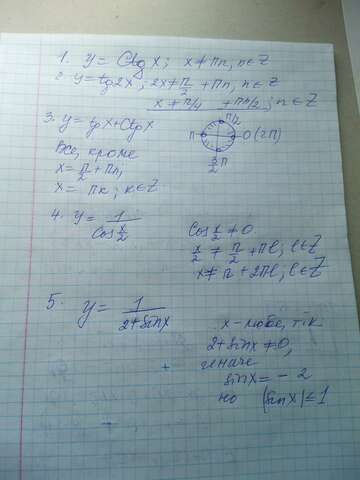 1. y = Ctg x; x ≠ πn, n∈Z
2. y = tg2x; 2x ≠ π/2 + πn, n∈Z
x ≠ π/4 + πn/2; n∈Z
3. y = tgx + Ctgx
π/2
π 0(2π)
3/2 π
Все, кроме
x = π/2 + πn,
x = πk; k∈Z
4. y = 1/Cos x/2
Cos x/2 ≠ 0
x/2 ≠ π/2 + πl; l∈Z
x ≠ π + 2πl; l∈Z
5. y = 1/2+sinx
x - любое, т.к.
2+sinx ≠ 0,
иначе
sinx = -2
но |sinx| ≤ 1